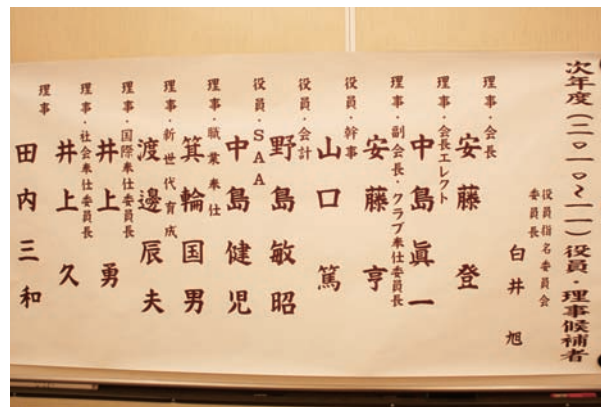 次年度(二〇一〇〜一一)役員・理事候補者
役員指名委員会
委員長
白井 旭
理事・会長
安藤 登
理事・会長エレクト
中島眞一
理事・副会長・クラブ奉仕委員長
安藤 亨
役員・幹事
山口 篤
役員・会計
野島敏昭
役員・SAA
中島健児
理事・職業奉仕
箕輪国男
理事・新世代育成
渡邊辰夫
理事・国際奉仕委員長
井上 勇
理事・社会奉仕委員長
井上 久
理事
田内三和